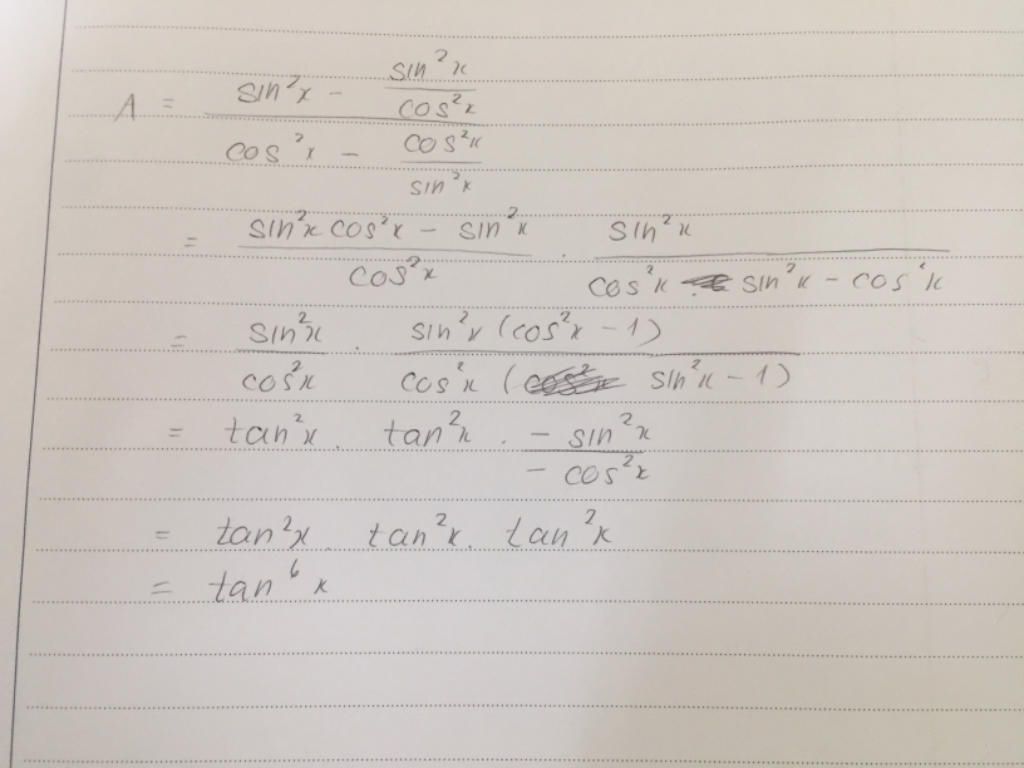 A = (sin²x - sin²x/cos²x) / (cos²x - cos²x/sin²x)
= (sin²x cos²x - sin²x)/cos²x . sin²x/(cos²x sin²x - cos²x)
= sin²x/cos²x . sin²x (cos²x - 1)/cos²x (sin²x - 1)
= tan²x . tan²x . - sin²x/- cos²x
= tan²x . tan²x . tan²x
= tan⁶x